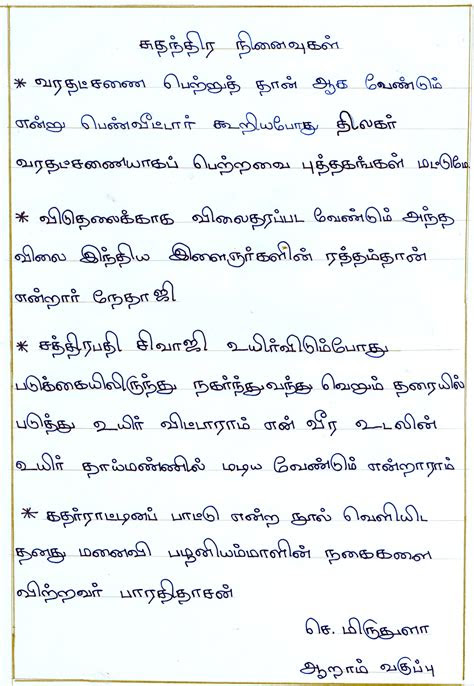 சுதந்திர நினைவுகள்
* வரதட்சணை பெற்றுத் தான் ஆக வேண்டும்
என்று பெண்வீட்டார் கூறியபோது திலகர்
வரதட்சணையாகப் பெற்றவை புத்தகங்கள் மட்டுமே
* விடுதலைக்காக விலைதரப்பட வேண்டும் அந்த
விலை இந்திய இளைஞர்களின் ரத்தம்தான்
என்றார் நேதாஜி
* சத்திரபதி சிவாஜி உயிர்விடும்போது
படுக்கையிலிருந்து நகர்ந்துவந்து வெறும் தரையில்
படுத்து உயிர் விட்டாராம் என் வீர உடலின்
உயிர் தாய்மண்ணில் மடிய வேண்டும் என்றாராம்
* கதர்ராட்டினப் பாட்டு என்ற நூல் வெளியிட
தனது மனைவி பழனியம்மாளின் நகைகளை
விற்றவர் பாரதிதாசன்
செ. மிருதுளா
ஆறாம் வகுப்பு